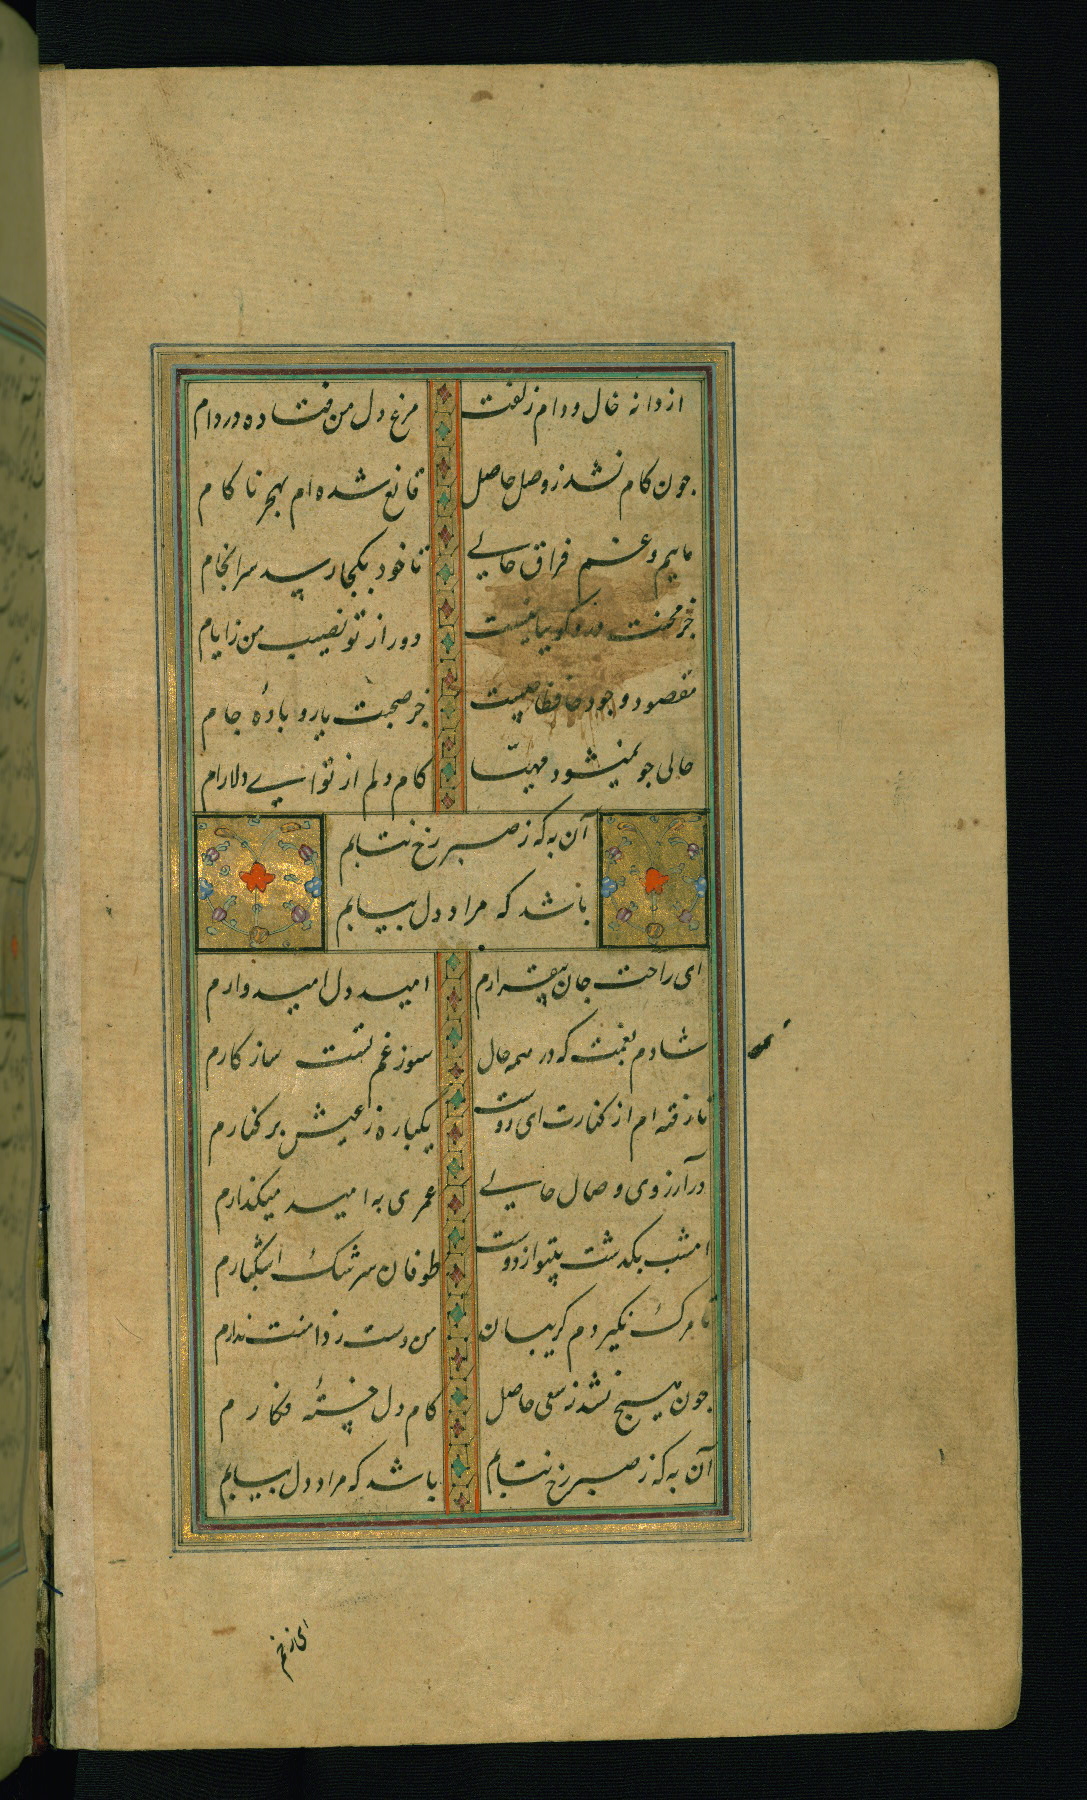 از دانه خال و دام زلفت مرغ دل من فتاده در دام
جون کام نشد ز وصل حاصل قانع شده ام بهجر ناکام
ماییم و غم فراق حالی تا خود بکجا رسد سرانجام
جز محنت درد کوییا نیست دور از تو نصیب من ز ایام
مقصود وجود حافظا چیست جز صحبت یار و بادهٔ جام
حالی جو نمیشود مهیّا کام دلم از تو ای دلارام
آن به که ز صبر رخ نتابم
باشد که مراد دل بیابم
ای راحت جان بیقرارم امید دل امیدوارم
شادم بغمت که در همه حال سوز غم تست سازکارم
تا رفته ام از کنارت ای دوست یکباره ز عیش بر کنارم
در آرزوی وصال حالی عمری به امید میکذارم
امشب بکدشت بیتو از دوست طوفان سرشک اشکبارم
تا مرک نکیردم کریبان من دست ز دامنت ندارم
جون هیچ نشد ز سعی حاصل کام دل خستهٔ فکارم
آن به که ز صبر رخ نتابم باشد که مراد دل بیابم
ای زخم